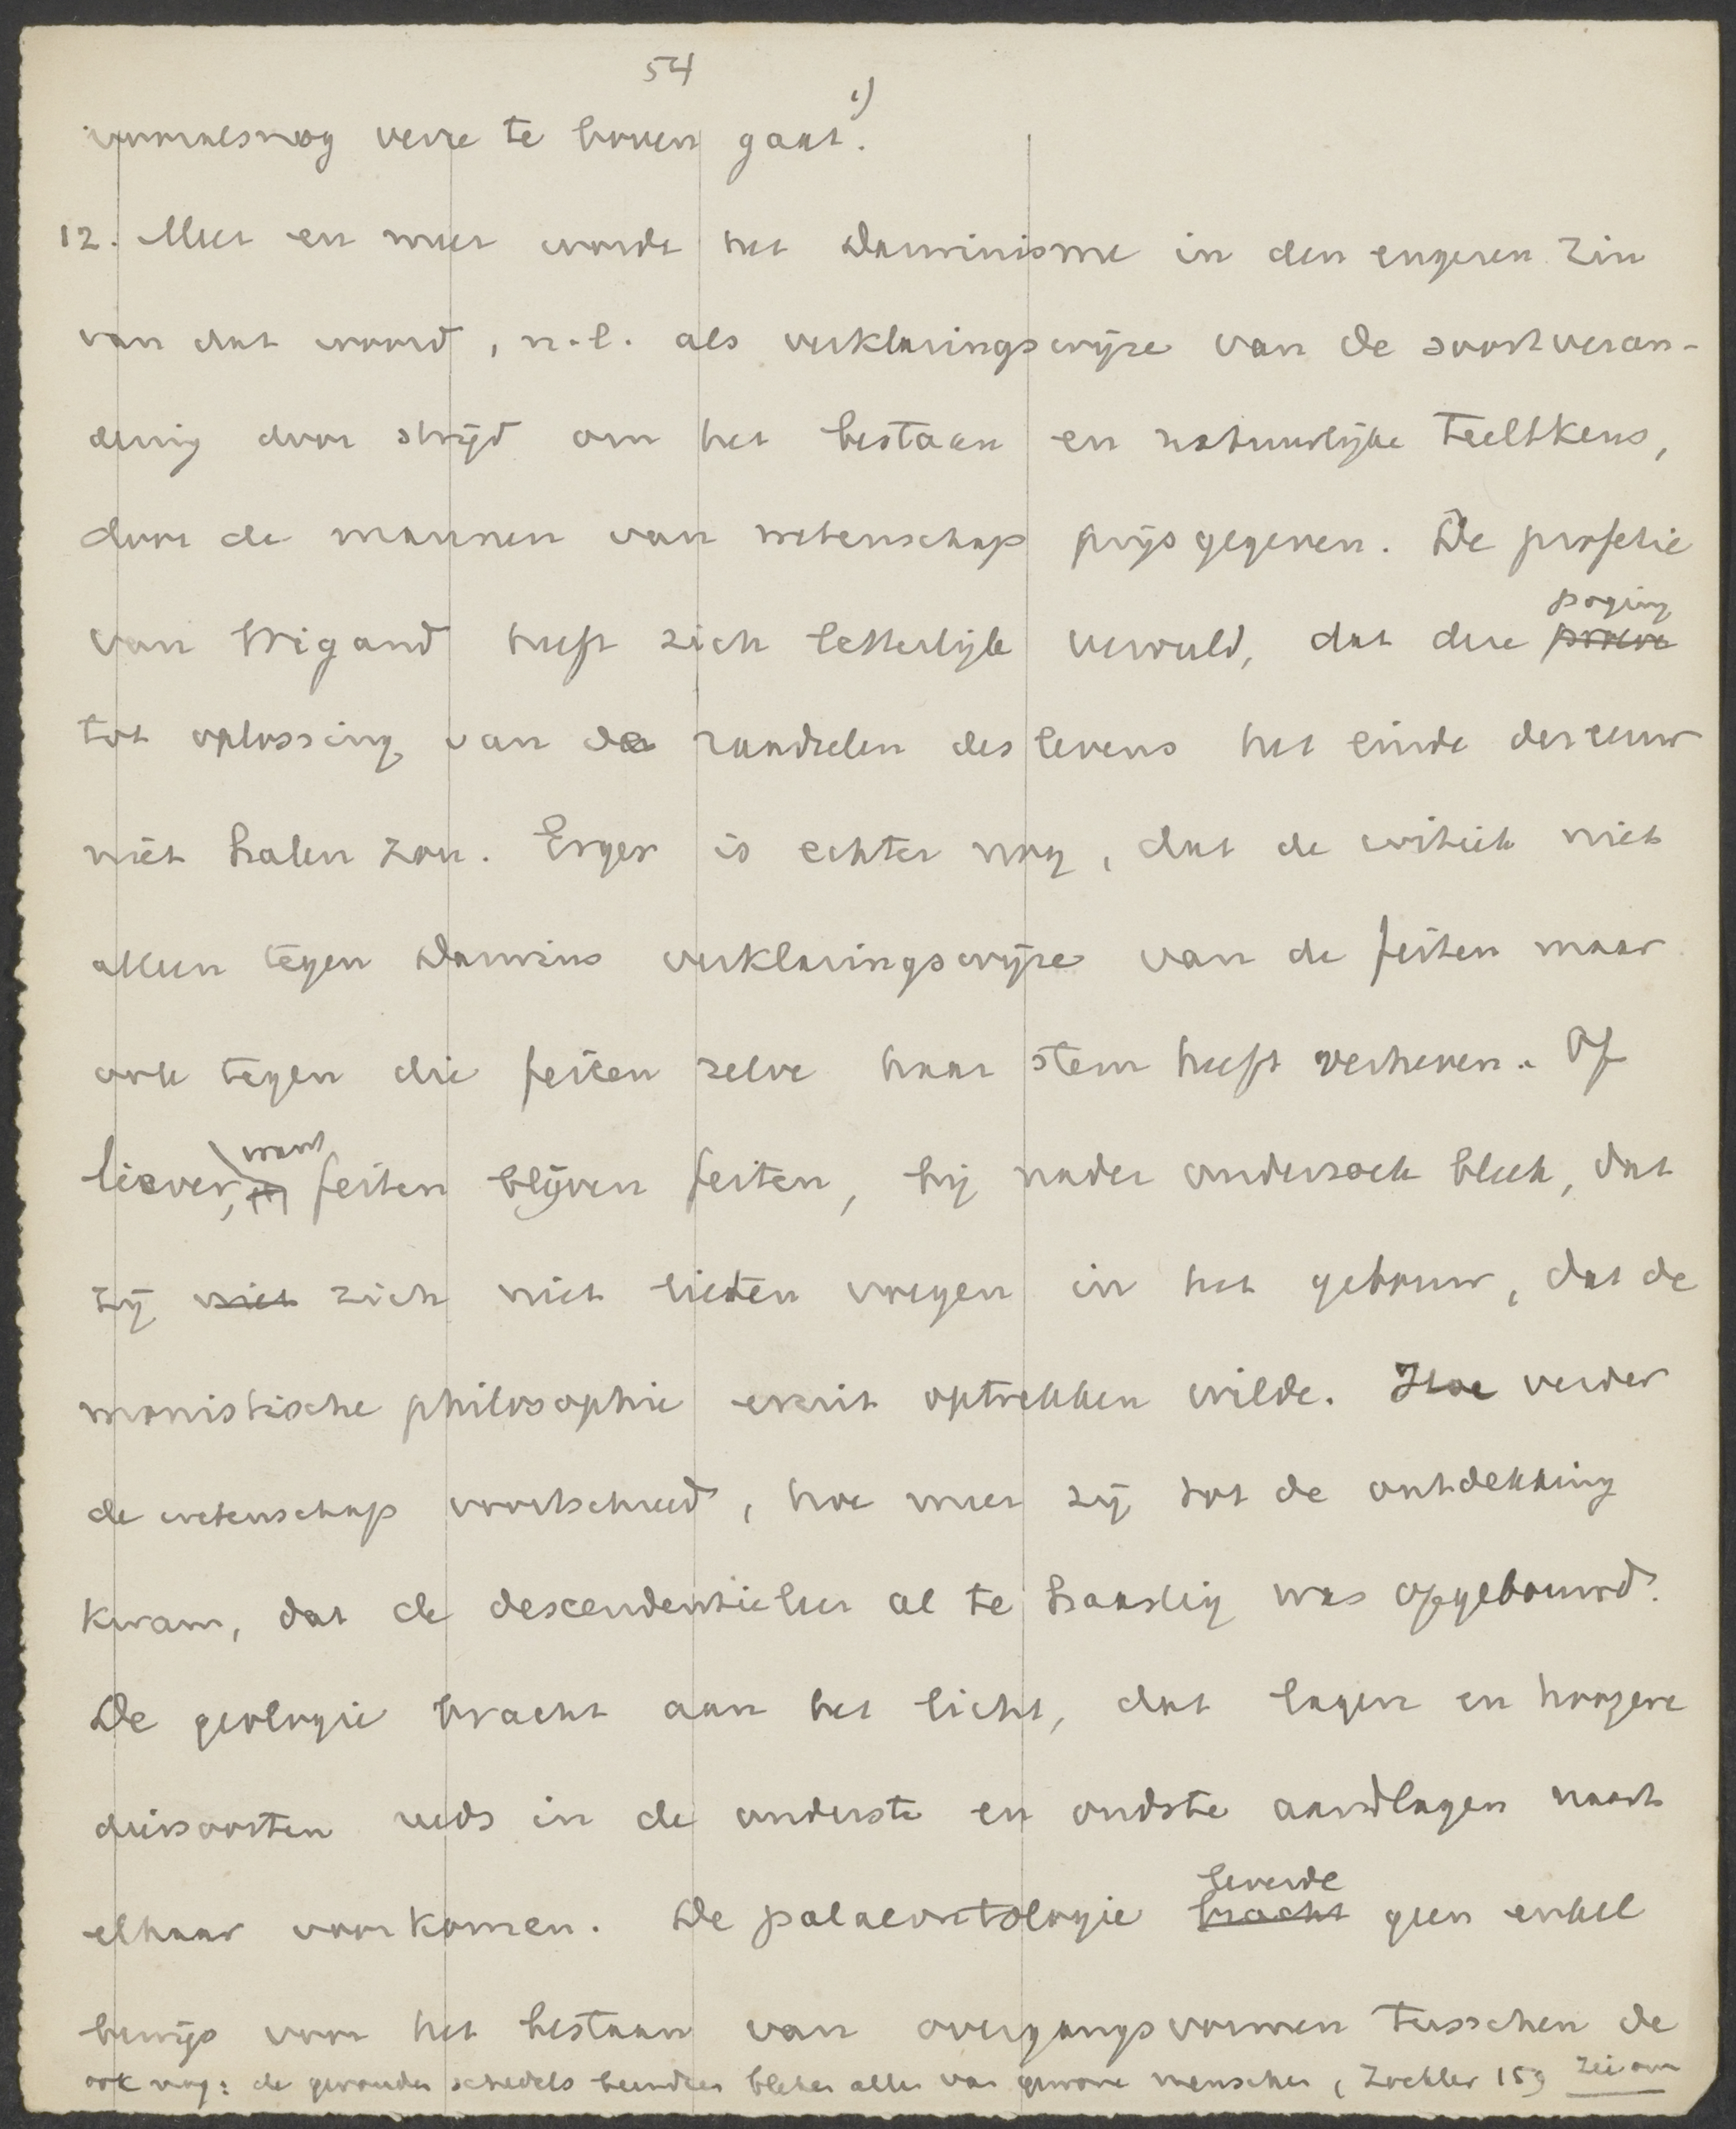 54
vooralsnog verre te boven gaat. 1)
12. Meer en meer wordt het Darwinisme in den engeren zin
van dat woord, n.l. als verklaringswijze van de soortveran-
dering door strijd om het bestaan en natuurlijke teeltkeus,
door de mannen van wetenschap prijsgegeven. De profetie
van Wigand heeft zich letterlijk vervuld, dat deze poging
tot oplossing van de raadselen des levens het einde der eeuw
niet halen zou. Erger is echter nog, dat de critiek niet
alleen tegen Darwins verklaringswijze van de feiten maar
ook tegen die feiten zelve haar stem heeft verheven. Of
liever, want feiten blijven feiten, bij nader onderzoek bleek, dat
zij niet zich niet lieten voegen in het gebouw, dat de
monistische philosophie eruit optrekken wilde. Hoe verder
de wetenschap voortschreed, hoe meer zij tot de ontdekking
kwam, dat de descendentieleer al te haastig was opgebouwd.
De geologie bracht aan het licht, dat lagere en hoogere
diersoorten reeds in de onderste en oudste aardlagen naast
elkaar voorkomen. De palaeontologie leverde bracht geen enkel
bewijs voor het bestaan van overgangsvormen tusschen de
ook nog: de gevonden schedels beenderen bleken alle van gewone menschen, Zöckler 159 zie om